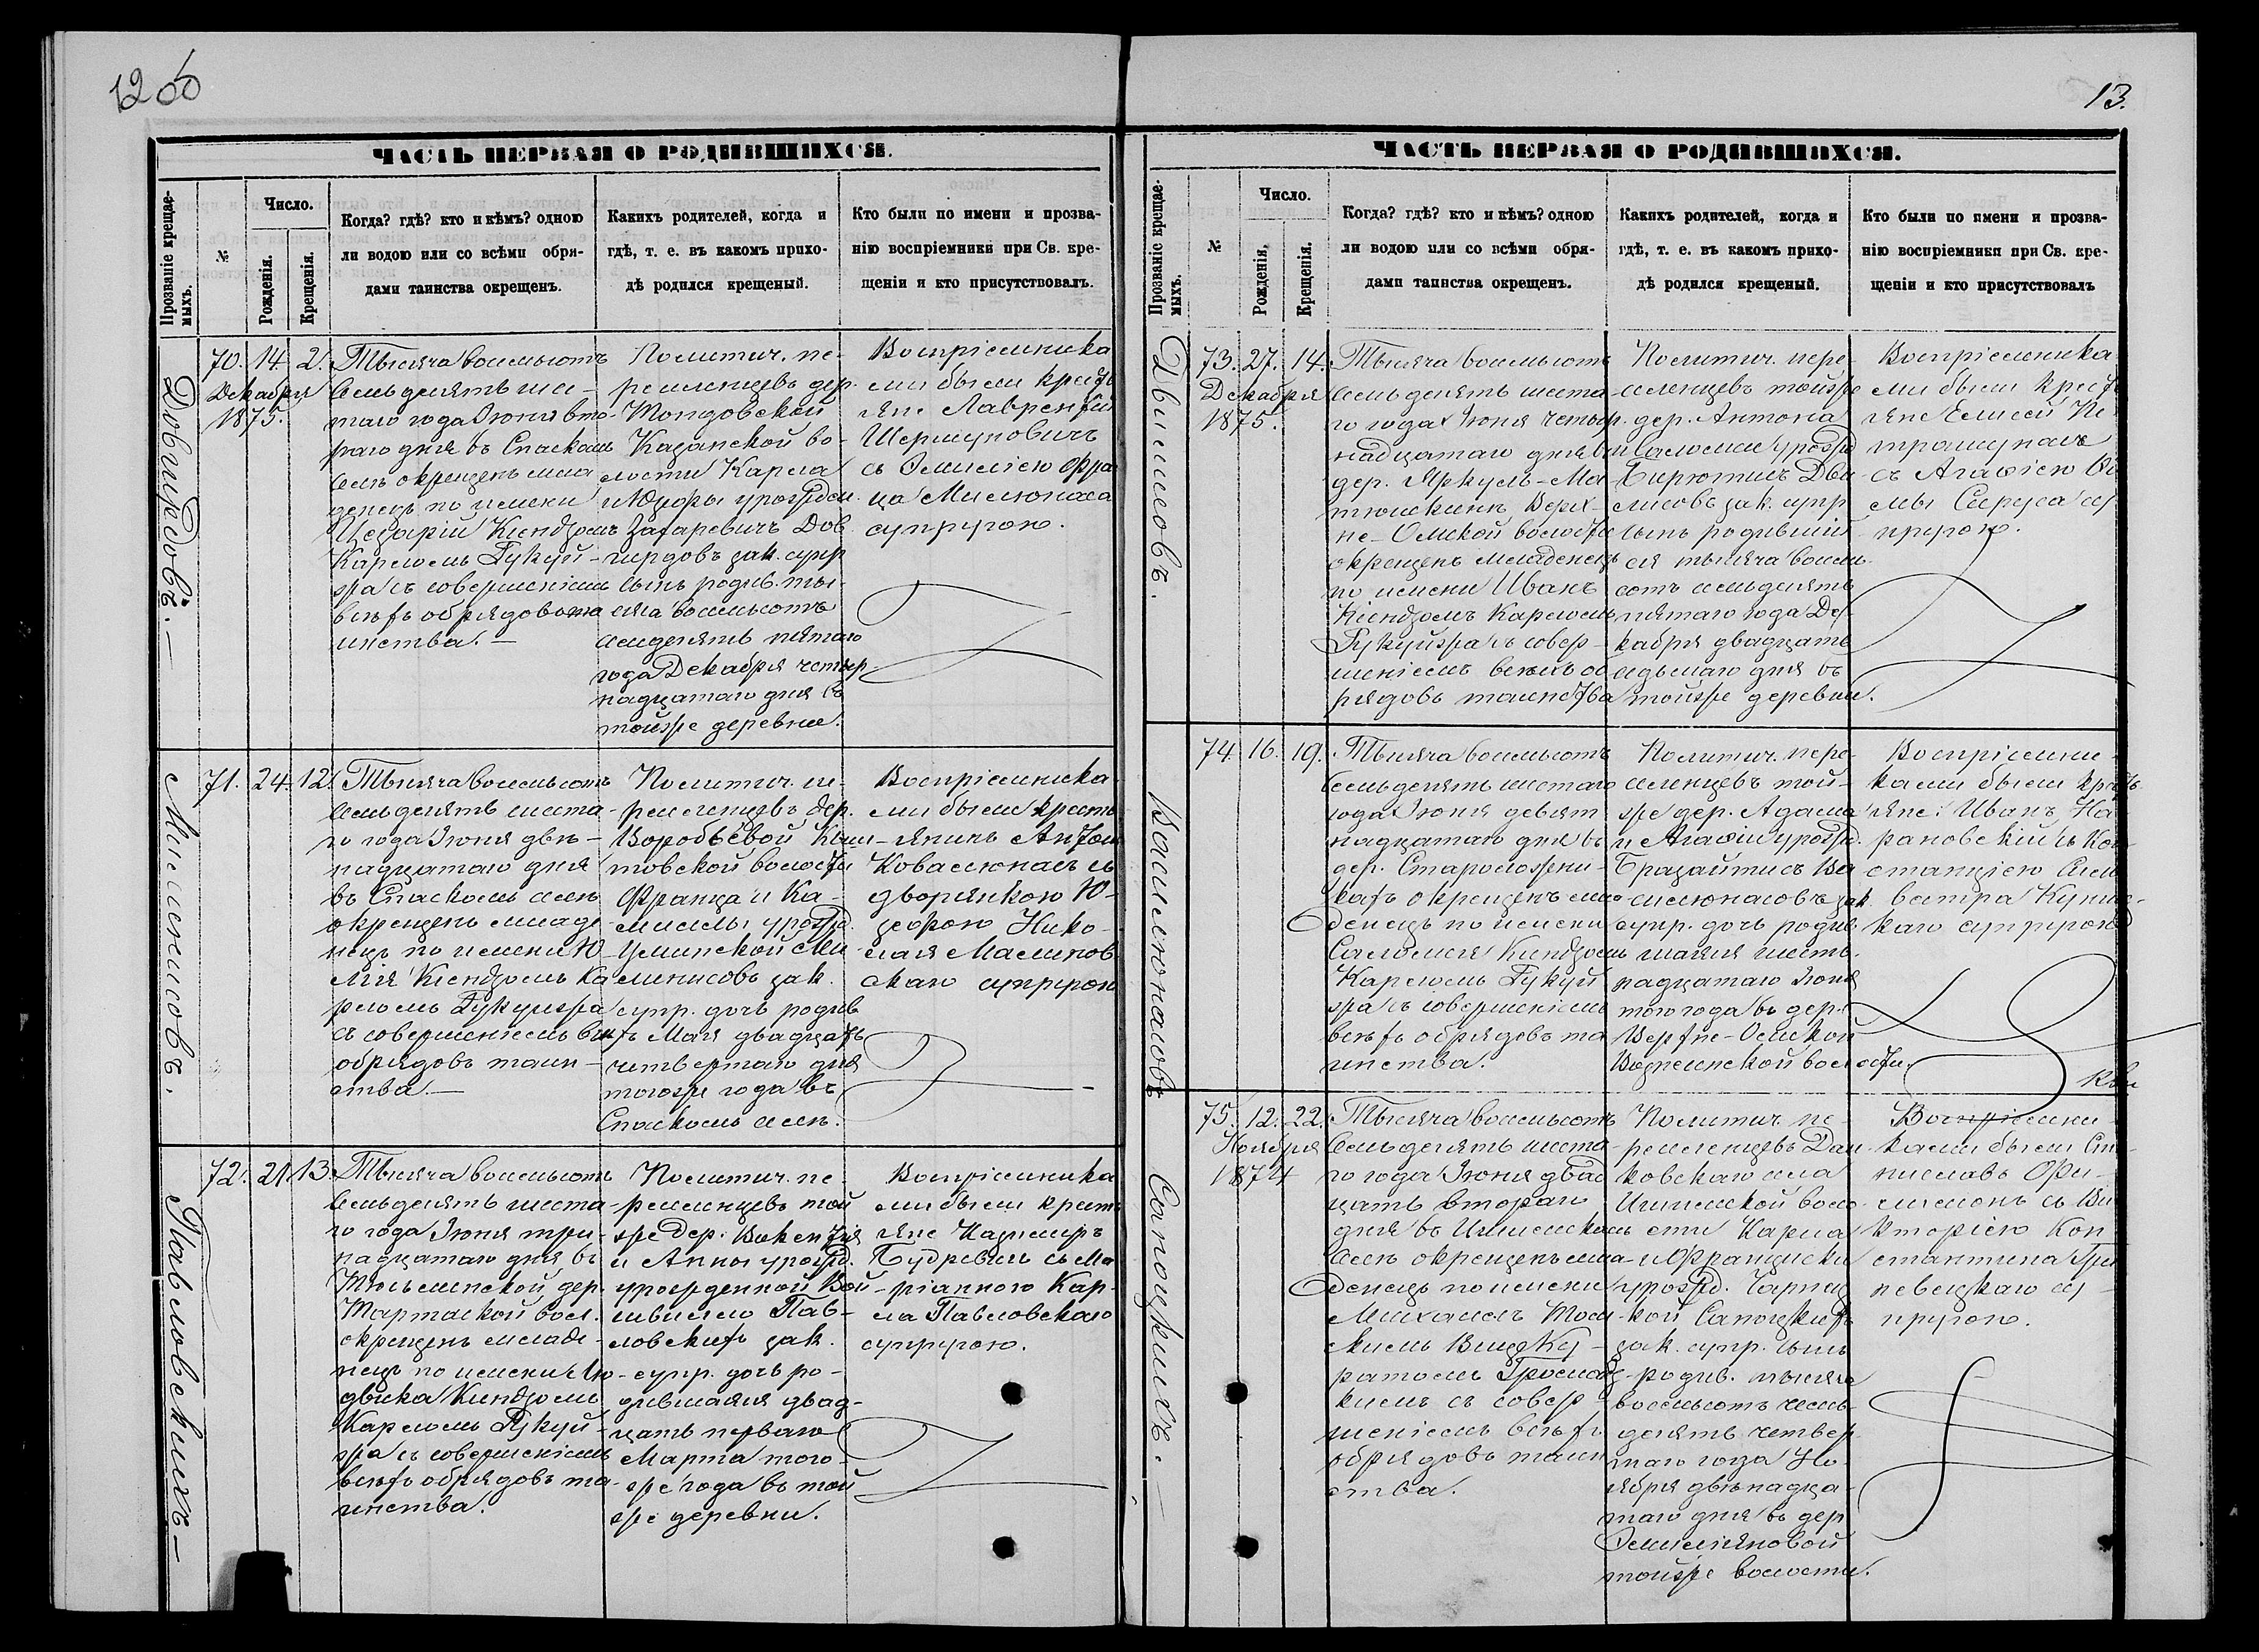 12 об
ЧАСТЬ ПЕРВАЯ О РОДИВШИХСЯ.
Прозваніе крещае-
мыхъ.
№
Число.
Рожденія.
Крещенія.
Когда? гдѣ? кто и кѣмъ? одною
ли водою или со всѣми обря-
дами таинства окрещенъ.
Какихъ родителей, когда и
гдѣ, т. е. въ какомъ прихо-
дѣ родился крещеный.
Кто были по имени и прозва-
нію воспріемники при Св. кре-
щеніи и кто присутствовалъ.
Довгирдовъ.—
70. 14. 2.
Декабря
1875.
Тысяча восемьсотъ
семьдесятъ шес-
таго года Іюня вто-
раго дня въ Спаскомъ
селѣ окрещенъ мла
денецъ по имени
Цезарій Ксендзомъ
Каролемъ Гукуй-
жа съ совершеніемъ
всѣхъ обрядовъ та
инства.—
Политич. пе-
реселенцевъ дер.
Казанской во-
лости Карла
Захаревичъ Дов
гирдовъ зак. супр
сынъ родив. ты-
сяча восемьсотъ
семдесятъ пятаго
года Декабря четыр-
надцатаго дня въ
тойже деревни.
Воспріемника
ми были кресть
яне Лаврентій
съ Эмиліею Фран
ца Милюнаса
супругою.
Милинисовъ.
71. 24. 12.
Тысяча восемьсотъ
семьдесятъ шеста-
го года Іюня двѣ-
надцатаго дня
въ Спаскомъ селѣ
окрещенъ младе
нецъ по имени Ю
лія Ксендзомъ Ка
ролемъ Гукуйжа
съ совершеніемъ всѣхъ
обрядовъ таин-
ства.—
Политич. пе-
реселенцевъ дер.
Воробьевой Кыш-
товской волости
Франца и Ка-
милы урожд.
зак.
супр. дочь родив
Мая двадцать
четвертаго дня
тогоже года въ
Спаскомъ селѣ.
Воспріемника
ми были кресть
янинъ Антон
Ковалюнасъ съ
дворянкою Ю-
зефою Нико-
лая Малинов
скаго супругою
Павловскихъ—
72. 21. 13.
Тысяча восемьсотъ
семьдесятъ шеста-
го года Іюня три-
надцатаго дня, въ
дер.
Тартаской вол.
окрещенъ младе-
нецъ по имени Лю-
двика Ксендзомъ
Каролемъ Гукуй-
жа съ совершеніемъ
всѣхъ обрядовъ та-
инства.
Политич. пе-
реселенцевъ той
же дер. Викентія
и Анны урожд.
урожденной Вой-
Пав-
ловскихъ зак.
супр. дочь ро-
дившаяся двад-
цать перваго
Марта того-
же года въ той
же деревни.
Воспріемника
ми были кресть
яне Казимиръ
Будревичъ съ Ма-
ріанною Кар-
ла Павловскаго
супругою.
13.
ЧАСТЬ ПЕРВАЯ О РОДИВШИХСЯ.
Прозваніе крещае-
мыхъ.
№
Число.
Рожденія.
Крещенія.
Когда? гдѣ? кто и кѣмъ? одною
ли водою или со всѣми обря-
дами таинства окрещенъ.
Какихъ родителей, когда и
гдѣ, т. е. въ какомъ прихо-
дѣ родился крещеный.
Кто были по имени и прозва-
нію воспріемники при Св. кре-
щеніи и кто присутствовалъ
Двилисовъ.
73. 27. 14.
Декабря
1875.
Тысяча восемьсотъ
семьдесятъ шеста-
го года Іюня четыр-
надцатаго дня въ
дер. Яркуль-Ма-
тюшкинъ Верх-
не-Омской волости
окрещенъ младенецъ
по имени Иванъ
Ксендзомъ Каролемъ
Гукуйжа съ совер-
шеніемъ всѣхъ об
рядовъ таинства
Политич. пере-
селенцевъ тойже
дер. Антона
и Саломеи урожд
Бирютисъ Дви
лисовъ зак. супр
сынъ родившій
ся тысяча восемь-
сотъ семьдесятъ
пятаго года Де-
кабря двадцать
седьмаго дня въ
тойже деревни.
Воспріемника-
ми были кресть
яне Елисей Пе
съ Агафіею
супругою.
Васкилюнасовъ
74. 16. 19.
Тысяча восемьсотъ
семьдесятъ шестаго
года Іюня девят
надцатаго дня въ
дер. Старологини-
хахъ окрещенъ мла-
денецъ по имени
Саломея Ксендзомъ
Каролемъ Гукуй
жа съ совершеніемъ
всѣхъ обрядовъ та
инства.
Политич. пере-
селенцевъ той-
же дер. Адама
и Агафіи урожд.
Брадайтисъ Ва
силюнасовъ зак.
супр. дочь родив
шаяся шесть-
надцатаго Іюня
того года въ дер.
Верхне-Омской
Вознесенской волости.
Воспріемни-
ками были кресть-
яне: Иванъ На-
рановскій съ Кон
станціею Силь
вестра
супругою
Сапоцкихъ.—
75. 12. 22.
Ноября
1874
Тысяча восемьсотъ
семьдесятъ шеста-
го года Іюня двад
цать втораго
дня въ
селѣ окрещенъ мла-
денецъ по имени
Михаилъ Том
скимъ Вице Ку-
ратомъ Громадз-
кимъ съ совер-
шеніемъ всѣхъ
обрядовъ таин
ства.
Политич. пе-
реселенцевъ Дан
ковскаго села
Ишимской воло-
сти Карла
и Францишки
урожд. Чарнец
кой Сапоцкихъ
зак. супр. сынъ
родив. тысяча
восемьсотъ семь
десятъ четвер
таго года Но-
ября двѣнадца-
таго дня въ дер
Емиліяновой
тойже волости.
Воспріемни-
ками были Ста-
ниславъ Фи-
лимонъ съ Ви
кторіею Кон
стантина Гри
невецкаго су-
пругою.